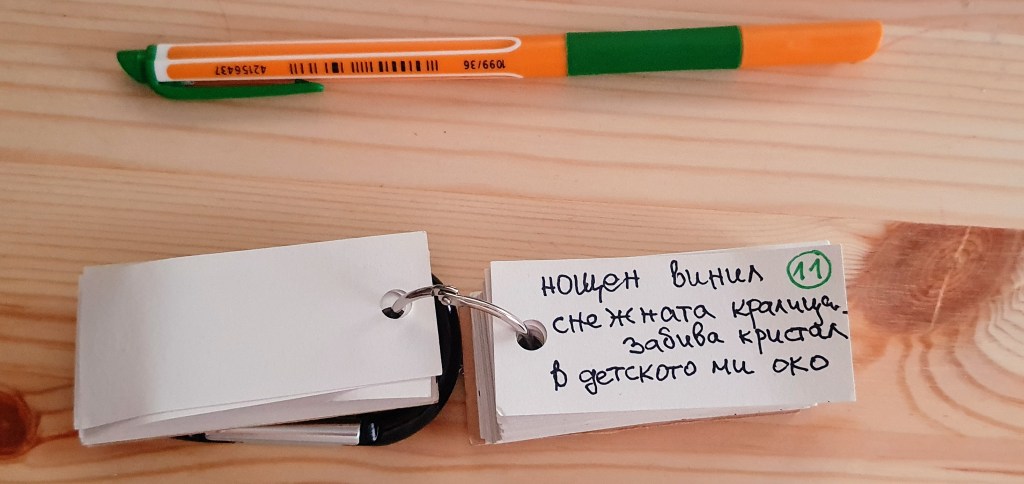 1099/36
42156437
нощен винил 11
снежната кралица
забива кристал
в детското ми око